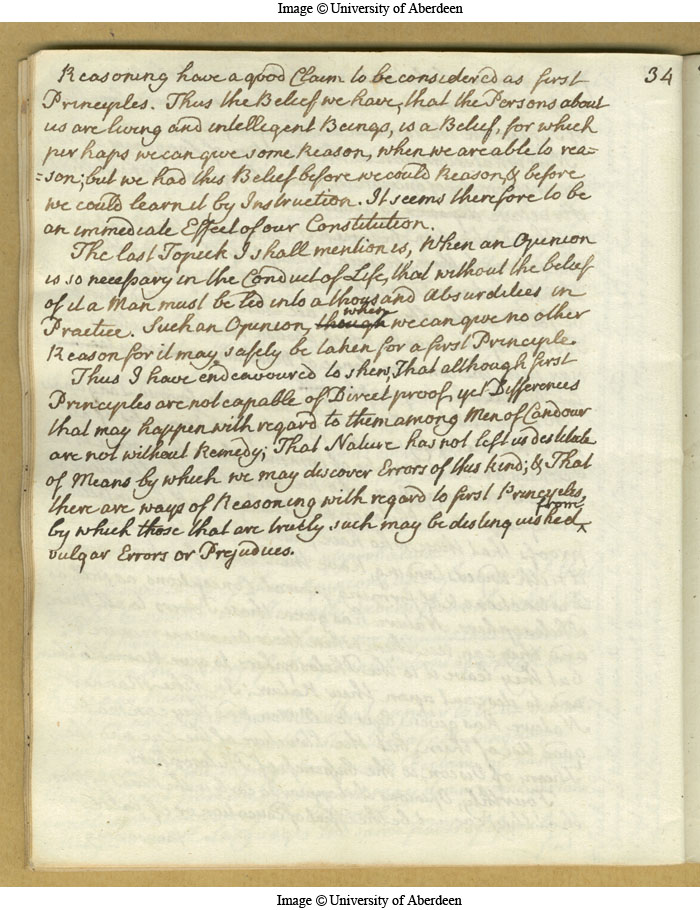 Image © University of Aberdeen
34
Reasoning have a good Claim to be considered as first
Principles. Thus the Belief we have, that the Persons about
us are living and intelligent Beings, is a Belief, for which
perhaps we can give some Reason, when we are able to rea=
=son; but we had this Belief before we could Reason, & before
we could learn it by Instruction. It seems therefore to be
an immediate Effect of our Constitution.
The last Topick I shall mention is, When an Opinion
is so necessary in the Conduct of Life, that without the belief
of it a Man must be led into a thousand Absurdities in
Practice. Such an Opinion, though when we can give no other
Reason for it may safely be taken for a first Principle.
Thus I have endeavoured to shew, That although first
Principles are not capable of Direct proof, yet Differences
that may happen with regard to them among Men of Candour
are not without Remedy; That Nature has not left us destitute
of Means by which we may discover Errors of this kind; & That
there are ways of Reasoning with regard to first Principles,
by which those that are truely such may be distinguished from
vulgar Errors or Prejudices.
Image © University of Aberdeen